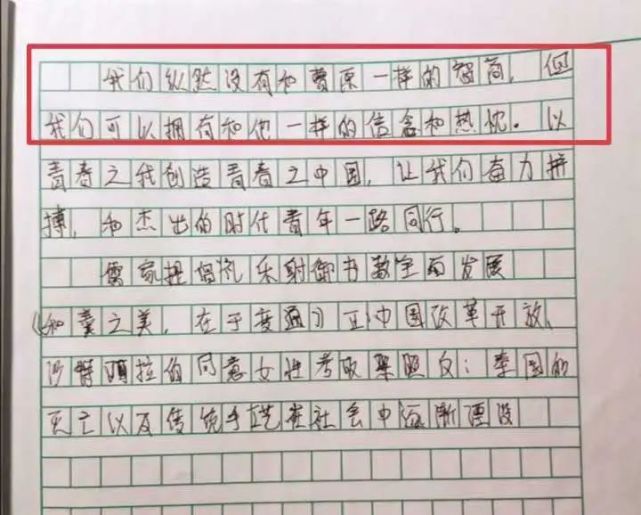 我们纵然没有和曹原一样的智商，但
我们可以拥有和他一样的信念和热忱。以
青春之我创造青春之中国，让我们奋力拼
搏，和杰出的时代青年一路同行。
儒家提倡礼乐射御书数全面发展
和羹之美，在于 中国改革开放、
沙特 拉的同意女性考取驾照 ；秦国的
灭亡以及传统手工艺在社会中逐渐湮没